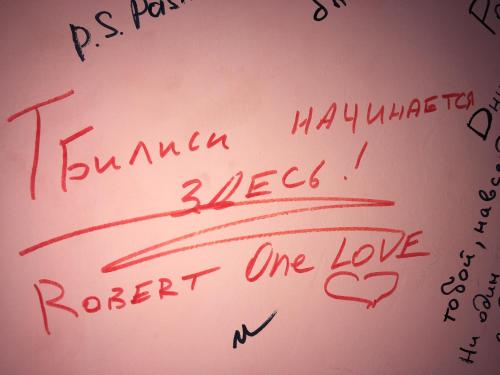 P.S.
Тбилиси начинается
здесь!
Robert One LOVE
тобой,
Ни один